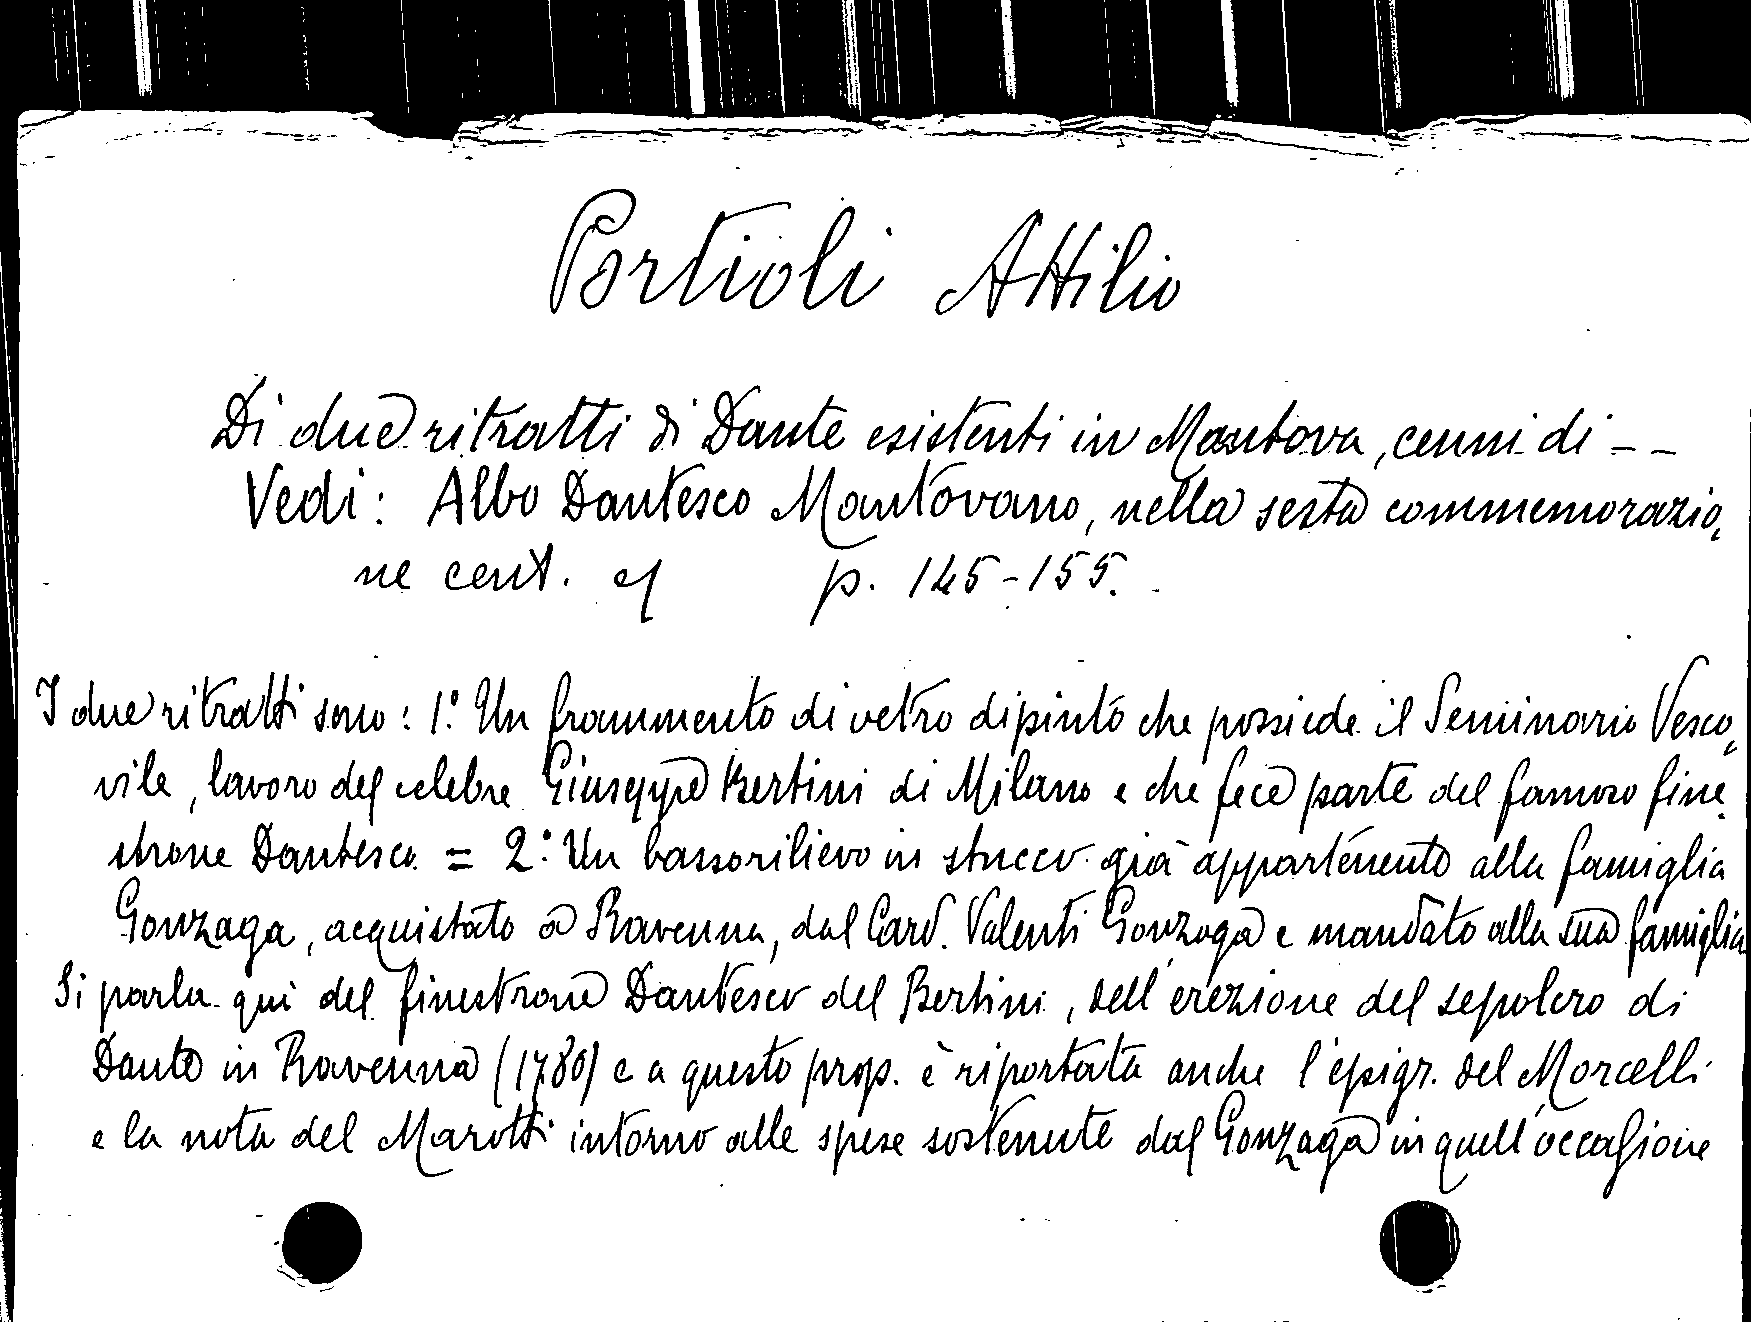 Portioli Attilio
Di due ritratti di Dante esistenti in Mantova, cenni di - -
Vedi: Albo Dantesco Mantovano, nella sesta commemorazio,
ne cent. ef p. 145-155.
I due ritratti sono: 1.° Un frammento di vetro dipinto che possiede il Seminario Vesco,
vile, lavoro del celebre Giuseppe Bertini di Milano e che fece parte del famoso fine,
strone Dantesco. = 2.° Un bassorilievo in stucco già appartenento alla famiglia
Gonzaga, acquistato a Ravenna, dal Card. Valenti Gonzaga e mandato alla sua famiglia
Si parla qui del finestrone Dantesco del Bertini, dell'erezione del sepolcro di
Dante in Ravenna (1780) e a questo prop. è riportata anche l'epigr. del Morcelli
e la nota del Marotti intorno alle spese sostenute dal Gonzaga in quell'occasione